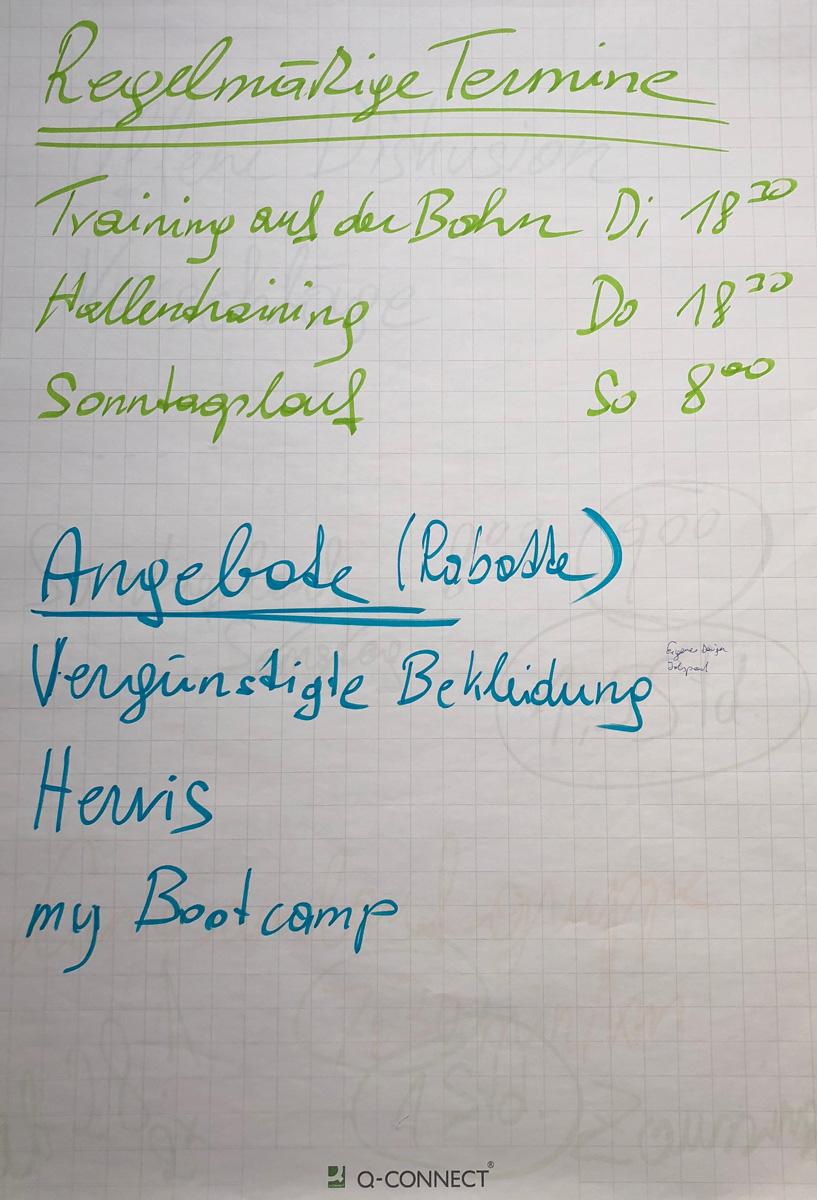 Regelmäßige Termine
Training auf der Bahn Di 18³⁰
Hallentraining Do 18³⁰
Sonntagslauf So 8⁰⁰
Angebote (Rabatte)
Vergünstigte Bekleidung
Eigenes Design
Hervis
my Bootcamp
Q-CONNECT®